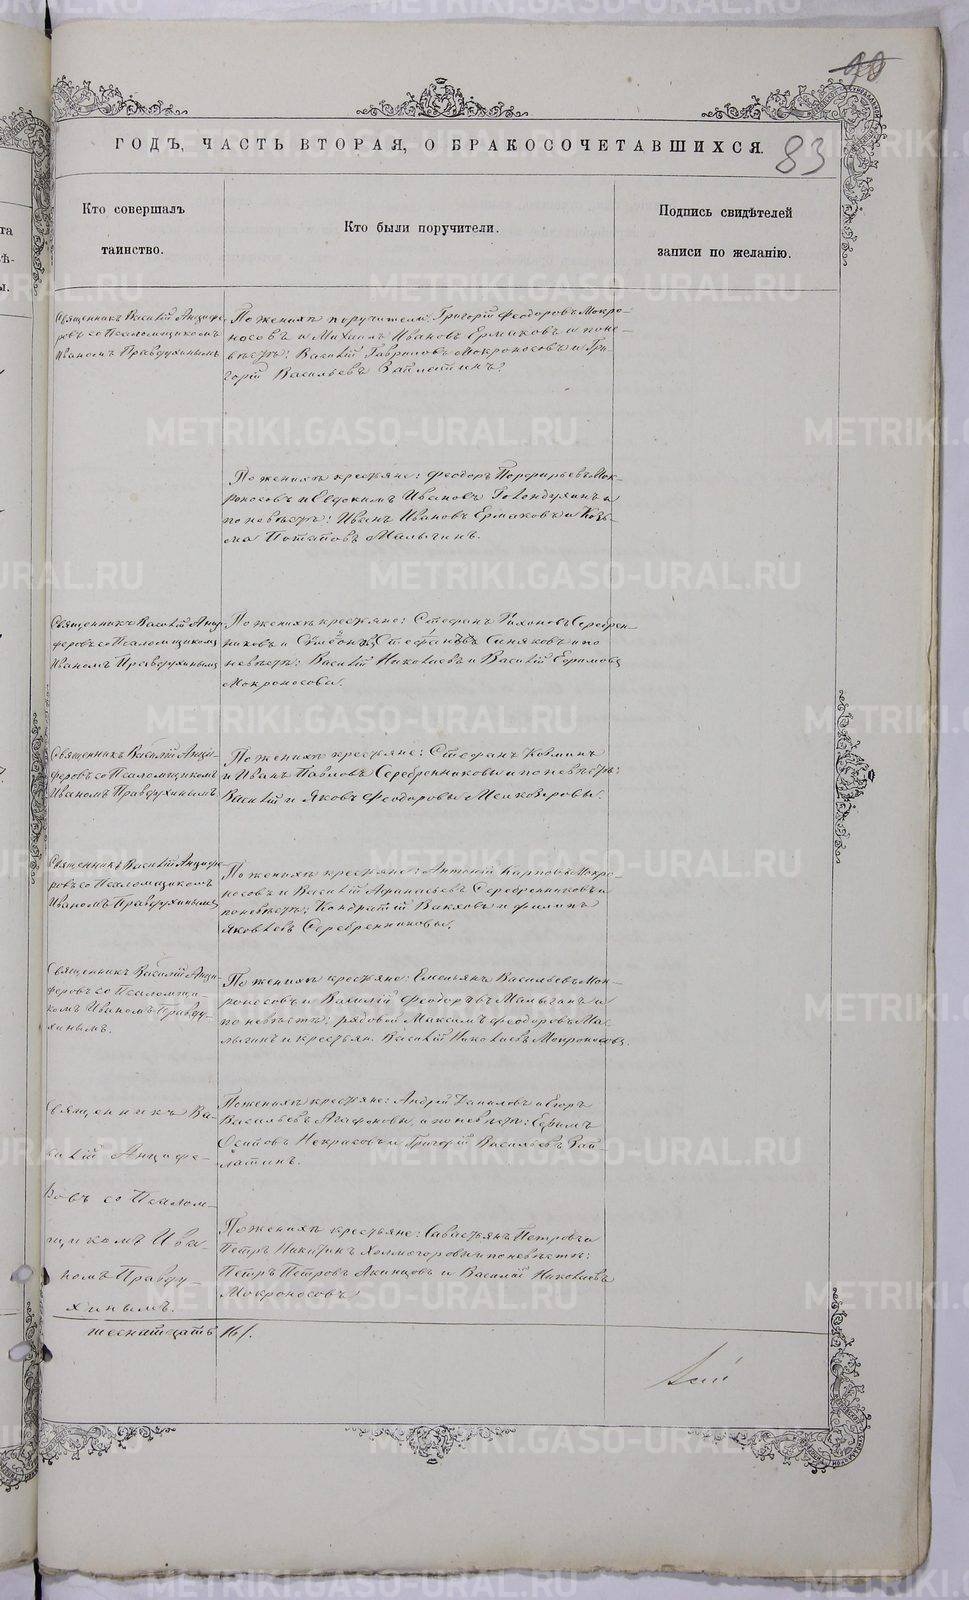 90
83
ГОДЪ, ЧАСТЬ ВТОРАЯ, О БРАКОСОЧЕТАВШИХСЯ.
Кто совершалъ
таинство.
Кто были поручители.
Подпись свидѣтелей
записи по желанію.
Священникъ Василій Анцифе-
ровъ со Псаломщикомъ
Иваномъ Правдухинымъ
По женихѣ поручители: Григорій Феодоровъ Мокро-
носовъ и Михаилъ Ивановъ Ермаковъ и по не-
вѣстѣ: Василій Гавриловъ Мокроносовъ и Гри-
горій Васильевъ Заплатинъ.
По женихѣ крестьяне: Феодоръ Порфирьевъ Мок-
роносовъ и Евдокимъ Ивановъ Голендухинъ и
по невѣстѣ: Иванъ Ивановъ Ермаковъ и Козь-
ма Потаповъ Малыгинъ.
Священникъ Василій Анци-
феровъ со Псаломщикомъ
Иваномъ Правдухинымъ
По женихѣ крестьяне: Стефанъ Тихоновъ Серебрен-
никовъ и Стефановъ Синяковъ и по
невѣстѣ: Василій Николаевъ и Василій Ефимовъ
Мокроносовы.
Священникъ Василій Анци-
феровъ со Псаломщикомъ
Иваномъ Правдухинымъ
По женихѣ крестьяне: Стефанъ Козминъ
и Иванъ Павловъ Серебренниковы и по невѣстѣ:
Василій и Яковъ Феодоровы Мелкозеровы.
Священникъ Василій Анцифе-
ровъ со Псаломщикомъ
Иваномъ Правдухинымъ
По женихѣ крестьяне: Антоній Карповъ Мокро-
носовъ и Василій Афанасьевъ Серебренниковъ и
по невѣстѣ: Кондратій Вакховъ и Филипъ
Яковлевъ Серебренниковы.
Священникъ Василій Анци-
феровъ со Псаломщи-
комъ Иваномъ Правду-
хинымъ.
По женихѣ крестьяне: Емельянъ Васильевъ Мок-
роносовъ и Василій Феодоровъ Малыгинъ и
по невѣстѣ: рядовой Максимъ Феодоровъ Ма-
лыгинъ и крестьян. Василій Николаевъ Мокроносовъ.
Священникъ Ва-
силій Анцифе-
ровъ со Псалом-
щикомъ Ива-
номъ Правду-
хинымъ.
По женихѣ крестьяне: Андрей Даниловъ и Егоръ
Васильевъ Агафоновы, и по невѣстѣ: Ефимъ
Осиповъ Некрасовъ и Григорій Васильевъ Зап-
латинъ.
По женихѣ крестьяне: Савастьянъ Петровъ и
Петръ Никитинъ Холмогоровы и по невѣстѣ:
Петръ Петровъ Акинцовъ и Василій Николаевъ
Мокроносовъ
шеснатцать 16/.
METRIKI.GASO-URAL.RU